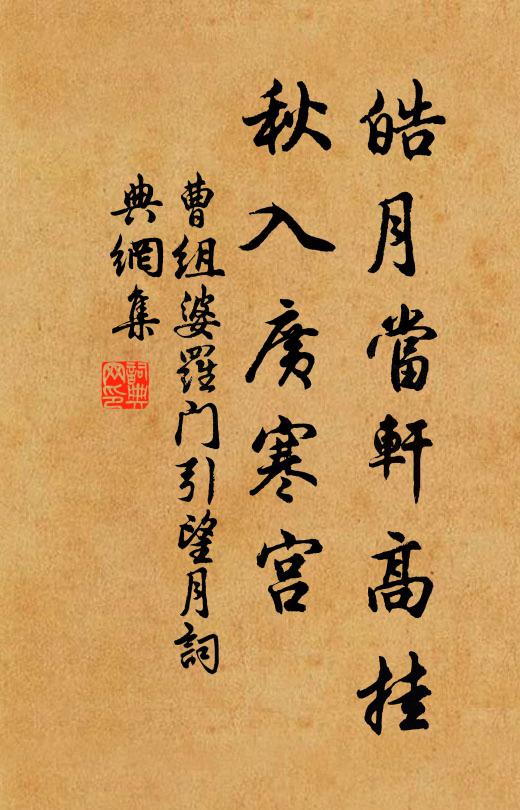 皓月當軒高挂
秋入廣寒宫
曹组婆羅门引望月詞
典網集
詞典网印